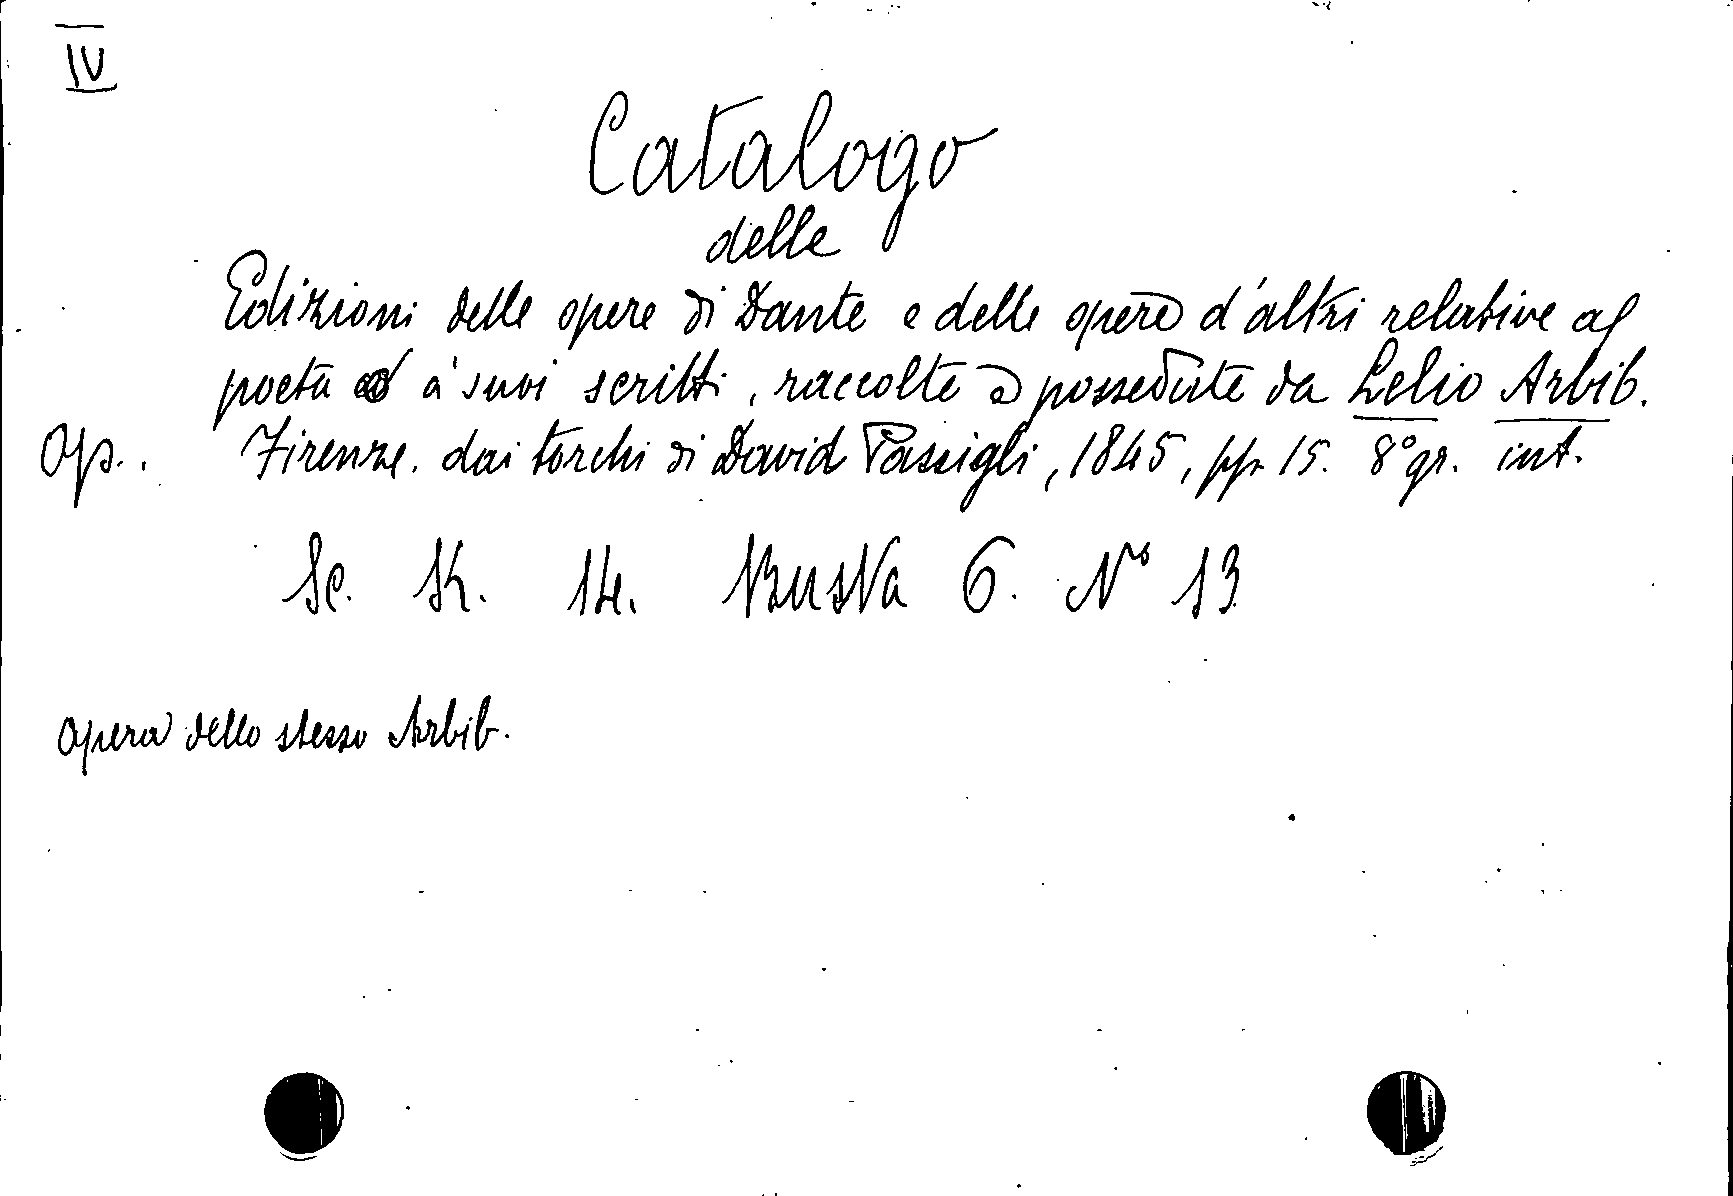 IV
Catalogo
delle
Edizioni delle opere di Dante e delle opere d'altri relative al
poeta ed a' suoi scritti, raccolte e possedute da Lelio Arbib.
Op. . Firenze. dai torchi di David Passigli, 1845, pp. 15. 8° gr. int.
Sc. K. 14. Busta 6. N° 13
Opera dello stesso Arbib.